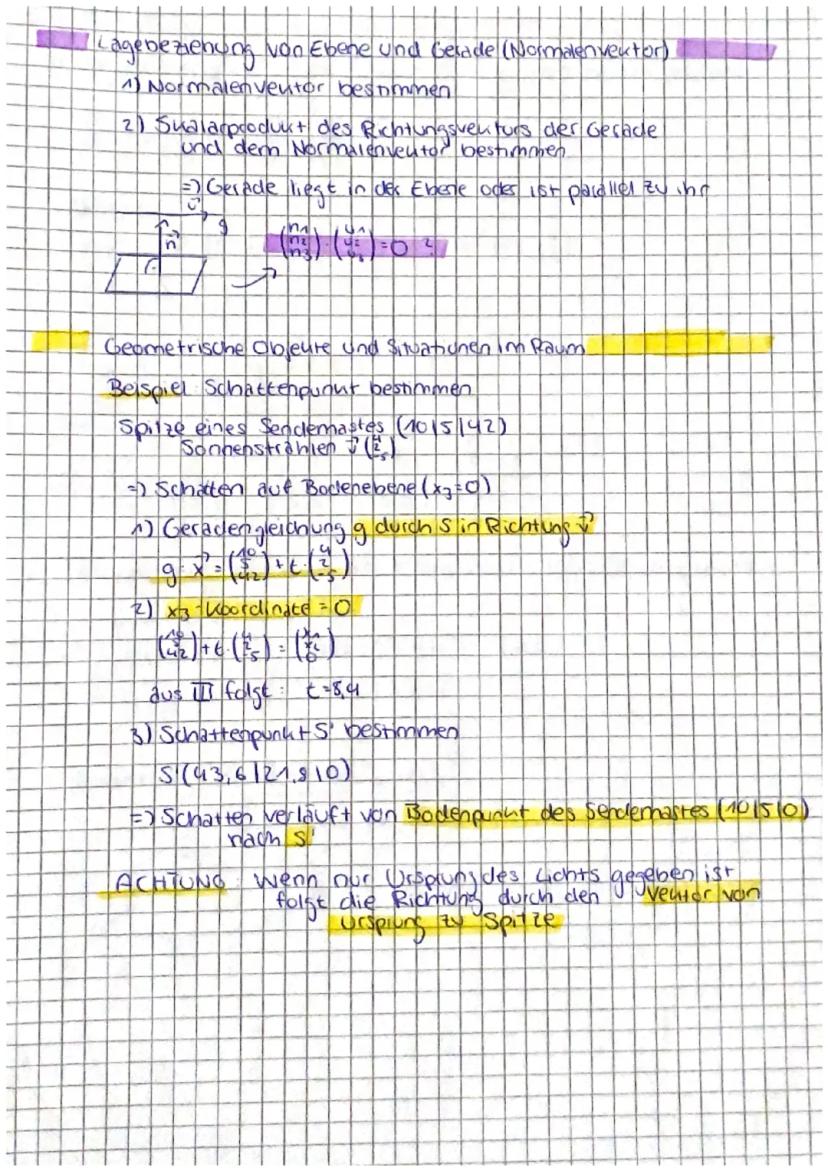 Lagebeziehung von Ebene und Gerade (Normalenvektor)
1) Normalenvektor bestimmen
2) Skalarprodukt des Richtungsvektors der Gerade
und dem Normalenvektor bestimmen
=> Gerade liegt in der Ebene oder ist parallel zu ihr
u⃗
g
n⃗
(n1 n2 n3) · (u1 u2 u3) = 0 ?
Geometrische Objekte und Situationen im Raum
Beispiel Schattenpunkt bestimmen
Spitze eines Sendemastes (10|5|42)
Sonnenstrahlen v⃗ (4 2 -5)
=> Schatten auf Bodenebene (x3=0)
1) Geradengleichung g durch S in Richtung v⃗
g: x⃗ = (10 5 42) + t · (4 2 -5)
2) x3-Koordinate = 0
(10 5 42) + t · (4 2 -5) = (x1 x2 0)
aus III folgt: t=8,4
3) Schattenpunkt S' bestimmen
S'(43,6|21,8|0)
=> Schatten verläuft von Bodenpunkt des Sendemastes (10|5|0)
nach S'
ACHTUNG: Wenn nur Ursprung des Lichts gegeben ist
folgt die Richtung durch den Vektor von
Ursprung zu Spitze